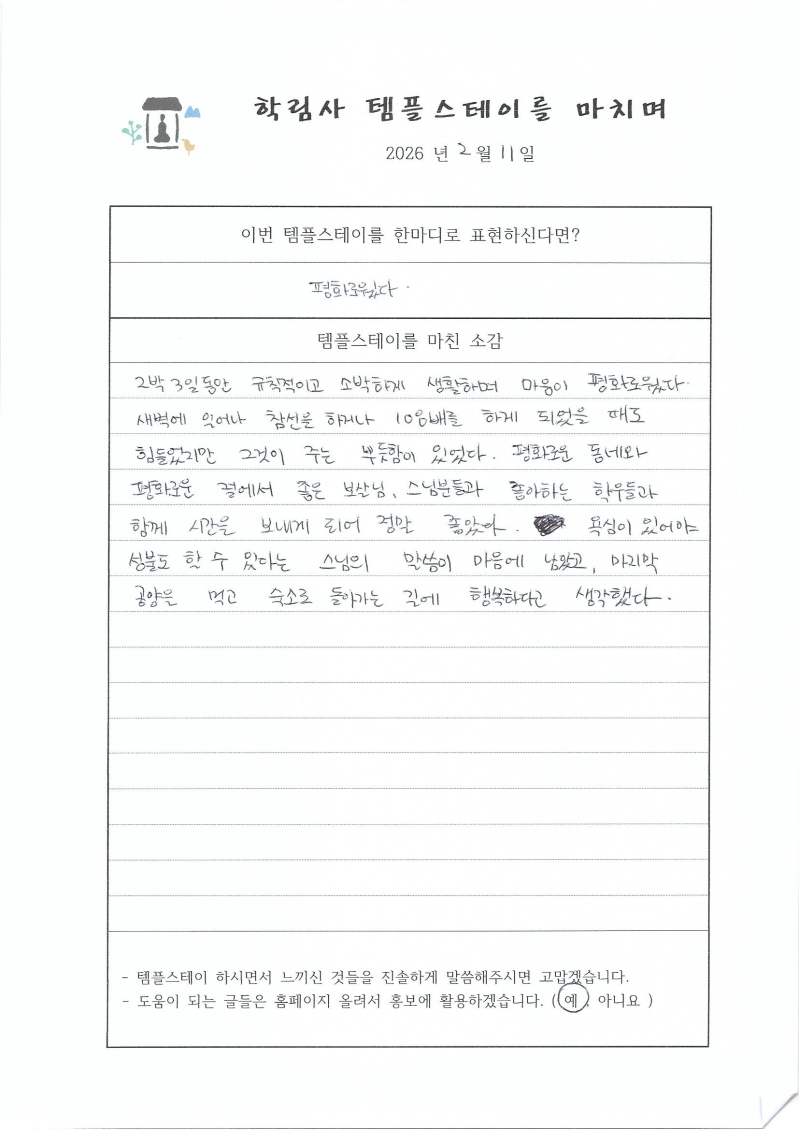 학림사 템플스테이를 마치며
2026 년 2 월 11 일
이번 템플스테이를 한마디로 표현하신다면?
평화로웠다.
템플스테이를 마친 소감
2박 3일동안 규칙적이고 소박하게 생활하며 마음이 평화로웠다.
새벽에 일어나 참선을 하거나 108배를 하게 되었을 때도
힘들었지만 그것이 주는 뿌듯함이 있었다. 평화로운 동네와
평화로운 절에서 좋은 보살님, 스님분들과 좋아하는 학우들과
함께 시간을 보내게 되어 정말 좋았다. 욕심이 있어야
성불도 할 수 있다는 스님의 말씀이 마음에 남았고, 마지막
공양을 먹고 숙소로 돌아가는 길에 행복하다고 생각했다.
- 템플스테이 하시면서 느끼신 것들을 진솔하게 말씀해주시면 고맙겠습니다.
- 도움이 되는 글들은 홈페이지 올려서 홍보에 활용하겠습니다. ( 예 . 아니요 )